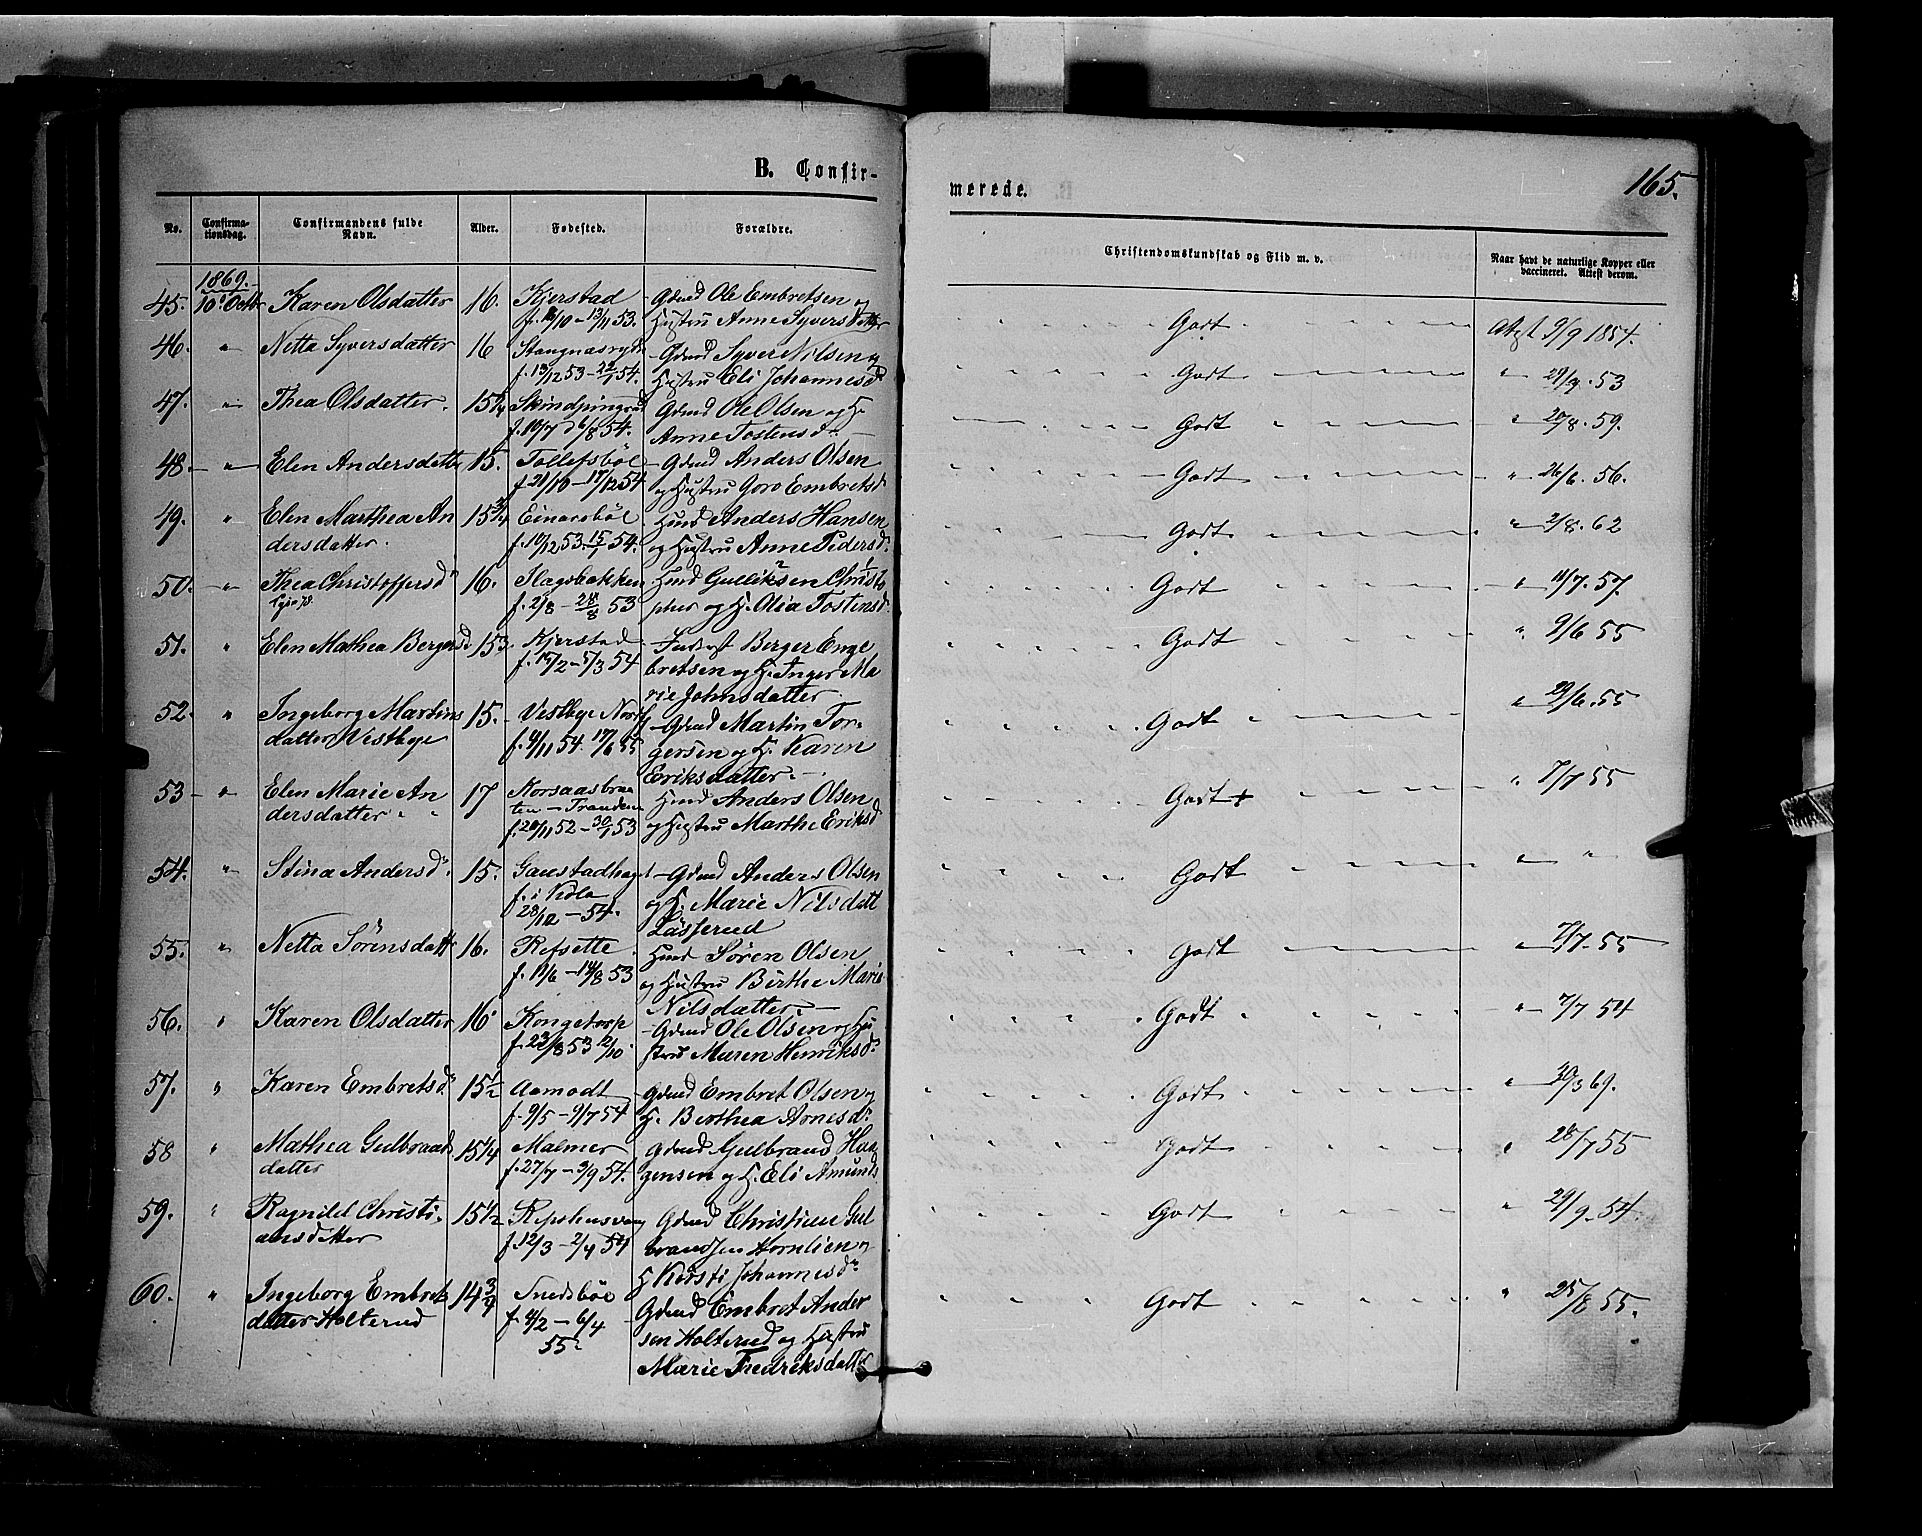 B. Confir-
merede.
165.
No.
Confirma-
tionsdag.
Confirmandens fulde
Navn.
Alder.
Fødested.
Forældre.
Christendomskundskab og Flid m. v.
Naar havt de naturlige Kopper eller
vaccineret. Attest derom.
1869.
45. 10 Octb Karen Olsdatter 16. Kjerstad Gdmd Ole Embretsen og
13/11 53. Hustru Anne Syvers Godt 9/9 1854.
46. " Netta Syversdatter 16 Gdmd Syver Nilsen og
f. 13/12 53 - 22/1 54. Hustru Eli Johannesd Godt " 29/9. 53
47. " Thea Olsdatter. 15 1/4 Gdmd Ole Olsen og H.
6/8 54. Anne Tostensd. Godt " 20/8. 59.
48. " Elen Andersdatt 15. Tollefsböl Gdmd Anders Olsen
f. 21/10 - 17/12 54 og Hustru Goro Embretsd Godt " 26/6. 56.
49. " Elen Marthea An 15 3/4 Einarsböl Hmd Anders Hansen
dersdatter. f. 10/12 53. 15/1 54. og Hustru Anne Pedersd. Godt " 2/8. 62
50. " Thea Christoffersd 16. Flagsbakken Hmd Gulliksen Christo
f. 2/8 - 28/8 53 pher og H. Olia Tostensd. Godt " 11/7. 57.
51. " Elen Mathea Bergersd 15 3 Kjerstad Inderst Berger Enge
f. 17/2 - 5/3 54 bretsen og H. Inger Ma
rie Johnsdatter Godt " 9/6 55
52. " Ingeborg Martins 15. Vestbye Gdmd Martin Tor
datter Vestbye f. 4/11 54. 17/6 55 gersen og H. Karen
Eriksdatter. Godt " 29/6. 55
53 " Elen Marie An 17 Korsaasbraa Hmd Anders Olsen
dersdatter ten - Tranden og Hustru Marthe Eriksd
f. 20/11 52 - 30/1 53 Godt " 7/7 55
54. " Stina Andersd. 15. Gaustadhaget Gdmd Anders Olsen
f. i og H. Marie Nilsdatt
28/12 - 54. Godt " "
55. " Netta Sörensdatt 16. Refsette Hmd Søren Olsen
f. 11/6 - 14/8 53 og Hustru Birthe Marie
Nilsdatter. Godt " 7/7. 55
56. " Karen Olsdatter 16 Kongetorp Gdmd Ole Olsen og Hu
f. 23/8 53 2/10. stru Maren Henriksd. Godt " 7/7 54
57. " Karen Embretsd. 15 1/2 Aamodt Gdmd Embret Olsen og
f. 9/5 - 9/7 54 H. Berthea Arnesd. Godt " 30/3 69.
58 " Mathea Gulbrands 15 1/4 Malmer Gdmd Gulbrand Haa
datter f. 27/7 - 3/9 54. gensen og H. Eli Amunds Godt " 28/7 55
59. " Ragnild Christi 15 1/2 Gdmd Christian Gul
ansdatter f. 12/3 - 2/4 54 brandsen Hornlien og
H Kirsti Johannesd. Godt " 29/9. 54.
60. " Ingeborg Embrets 14 3/4 Snedsböl Gdmd Embret Ander
datter Holterud f. 11/2 - 6/4 sen Holterud og Hustru
55. Marie Fredriksdatter Godt " 25/8 55.